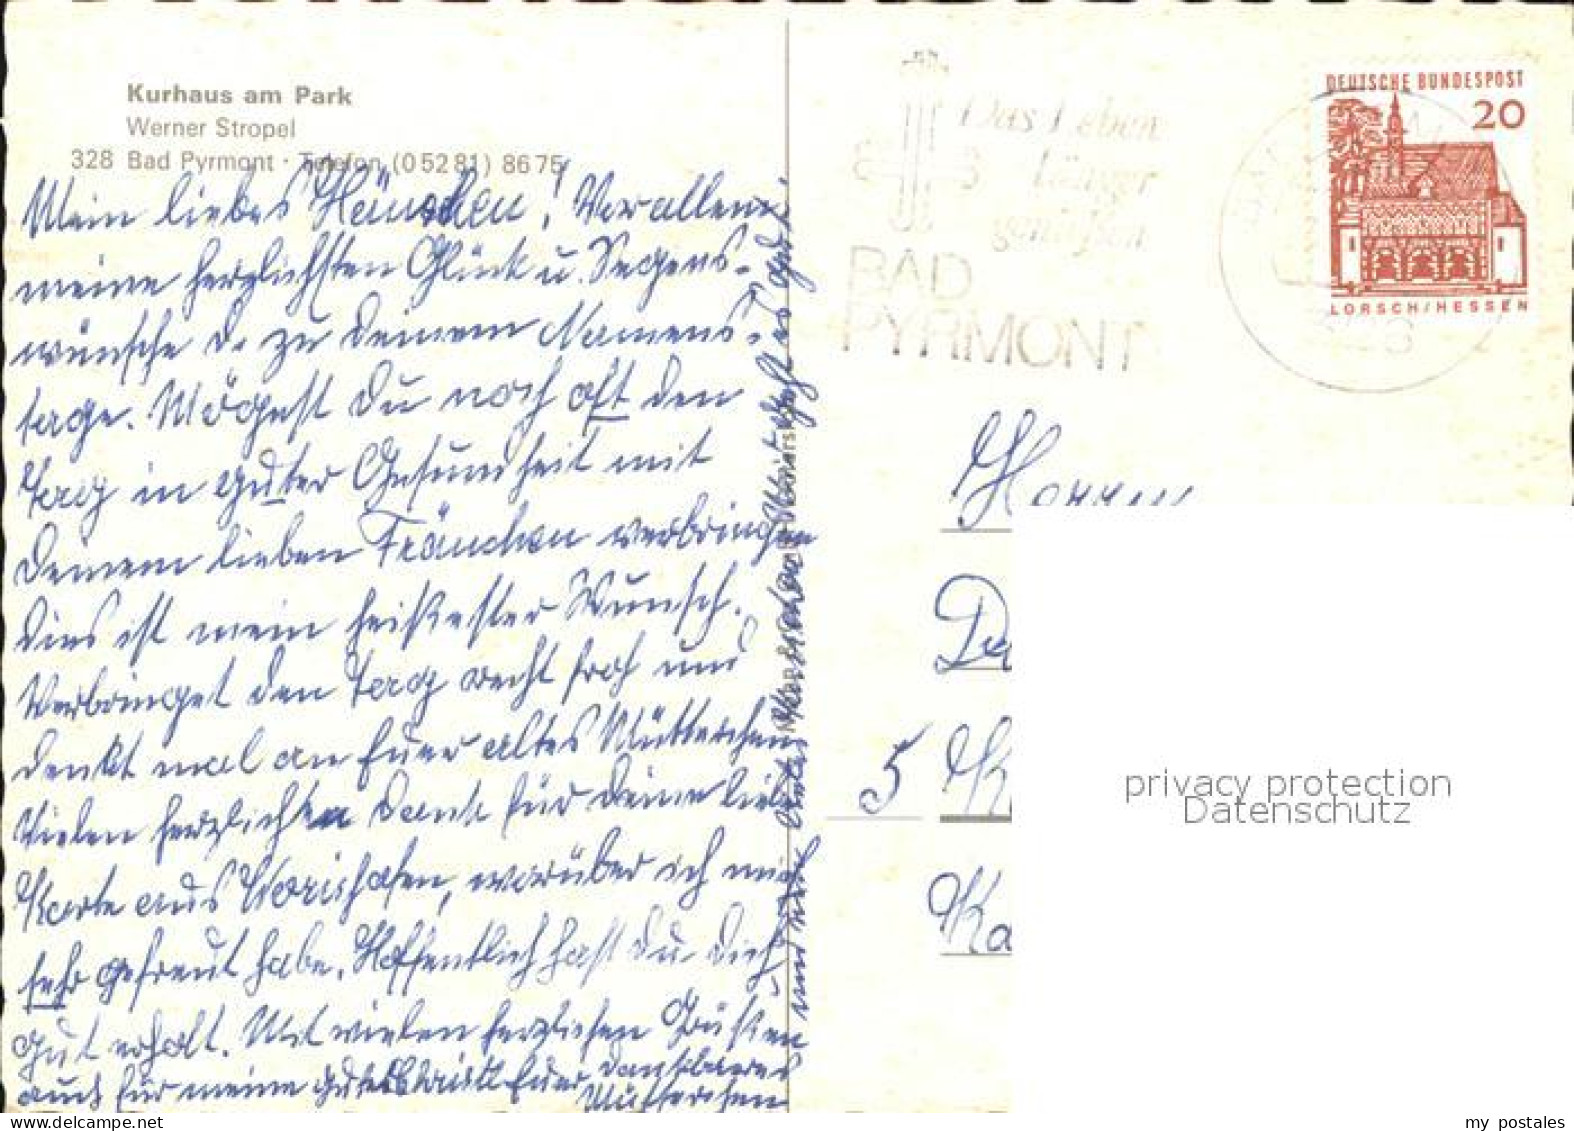 Kurhaus am Park
Werner Stropel
328 Bad Pyrmont · Telefon (05281) 8675
Mein liebes Hänschen! Vor allem
meine herzlichsten Glück u. Segens-
wünsche d. zu Deinem Namens-
tage. Mögest Du noch oft den
Tag in guter Gesundheit mit
Deinem lieben Fräuchen verbringen
Dies ist mein heißester Wunsch.
Verbringet den Tag recht froh und
denkt mal an Euer altes Mütterchen
Vielen herzlichen Dank für Deine liebe
Karte aus Wörishofen, worüber ich mich
sehr gefreut habe. Hoffentlich hast Du Dich
gut erholt. Mit vielen herzlichen Grüßen
auch für meine gute Euer dankbares
Mütterchen
Das Leben
länger
genießen
BAD
PYRMONT
DEUTSCHE BUNDESPOST
20
LORSCH/HESSEN
Herrn
5 K
Ka
privacy protection
Datenschutz
my postales